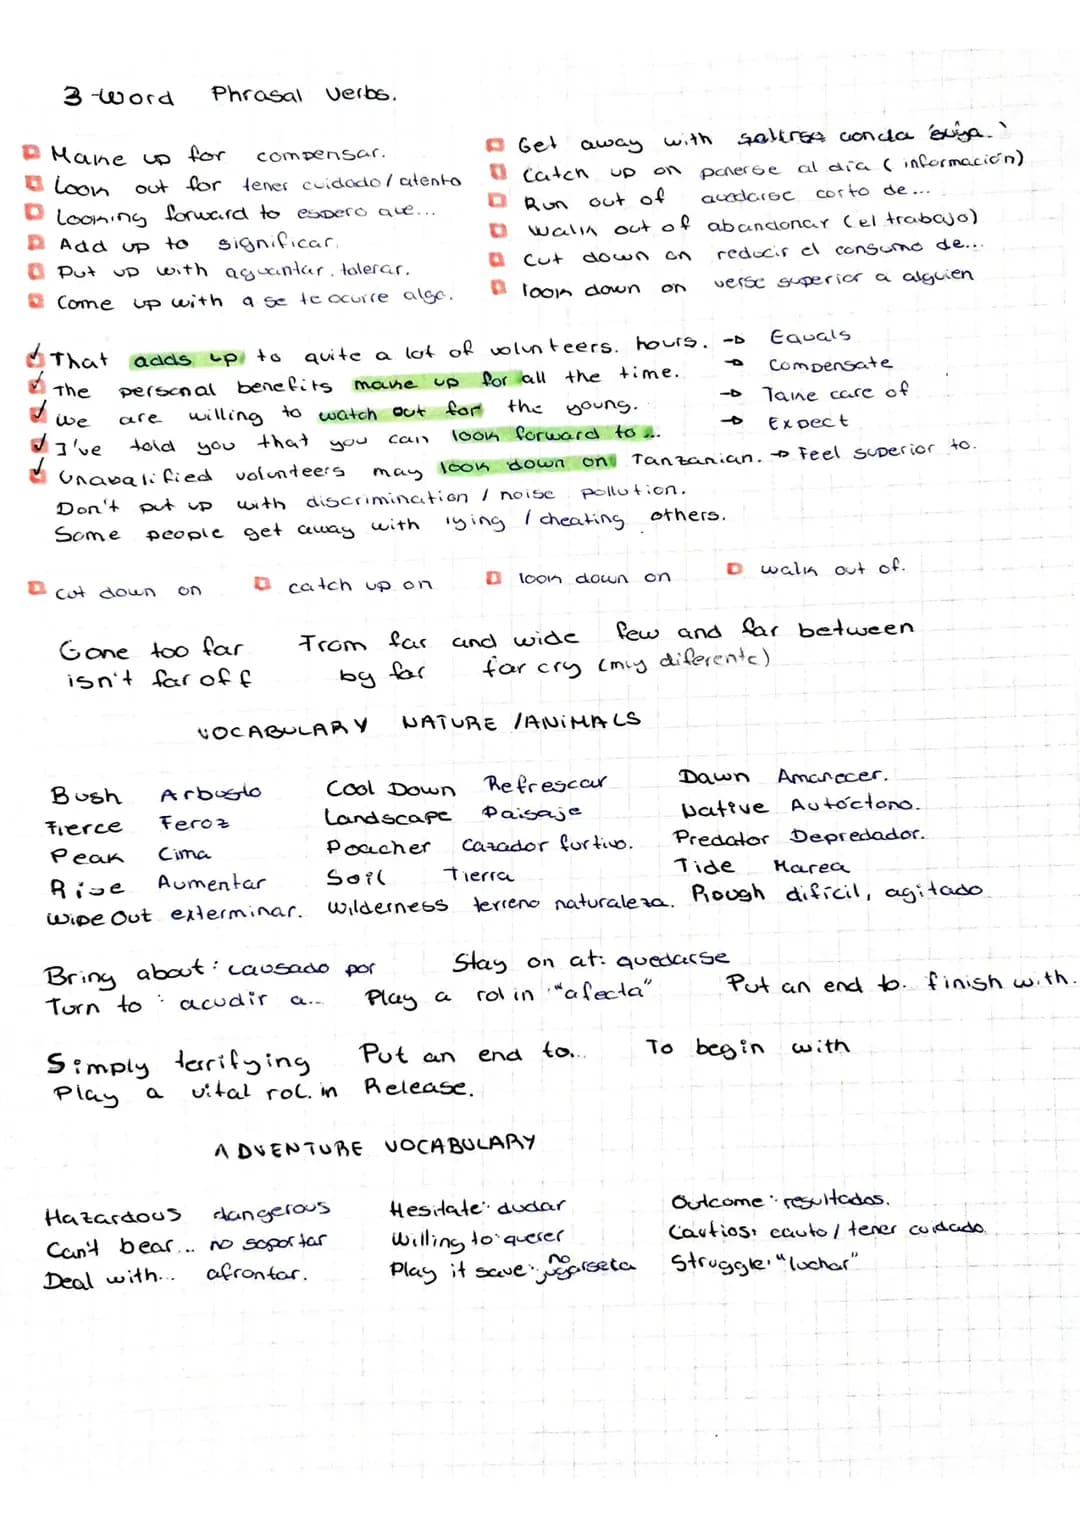 3 Word Phrasal Verbs.
Make up for compensar.
Look out for tener cuidado / atento
Looking forward to espero que...
Add up to significar.
Put up with aguantar, tolerar.
Come up with q se te ocurre algo.
Get away with salirse con la suya.
Catch up on ponerse al día (información)
Run out of quedarse corto de...
Walk out of abandonar (el trabajo)
Cut down on reducir el consumo de...
look down on verse superior a alguien
That adds up to quite a lot of volunteers. hours. → Equals
The personal benefits make up for all the time. → Compensate
We are willing to watch out for the young. → Take care of
I've told you that you can look forward to ... → Expect
Unqualified volunteers may look down on Tanzanian. → Feel superior to.
Don't put up with discrimination / noise pollution.
Some people get away with lying / cheating others.
cut down on catch up on look down on walk out of.
Gone too far From far and wide few and far between
isn't far off by far far cry (muy diferente)
VOCABULARY NATURE / ANIMALS
Bush Arbusto Cool Down Refrescar Dawn Amanecer.
Fierce Feroz Landscape Paisaje Native Autóctono.
Peak Cima Poacher Cazador furtivo. Predator Depredador.
Rise Aumentar Soil Tierra Tide Marea
Wipe Out exterminar. Wilderness terreno naturaleza. Rough difícil, agitado
Bring about: causado por Stay on at: quedarse
Turn to : acudir a... Play a rol in "afecta" Put an end to. finish with.
Simply terrifying Put an end to... To begin with
Play a vital rol. in Release.
ADVENTURE VOCABULARY
Hazardous dangerous Hesitate: dudar Outcome: resultados.
Can't bear... no soportar Willing to: querer Cautios: cauto / tener cuidado
Deal with... afrontar. Play it save: no jugarsela Struggle: "luchar"